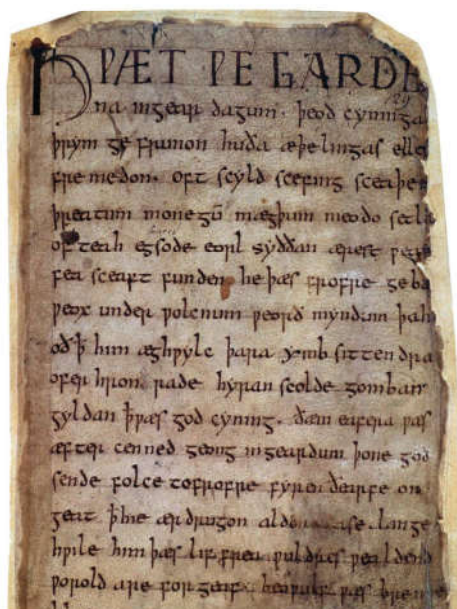 HǷÆT ǷE GARDE
na ingear dagum. þeod cyninga
þrym ge frunon huða æþelingas elle
fremedon. oft scyld scefing sceaþe
þreatum monegū mægþum meodo setla
of teah egsode eorl syððan ærest ƿea
fea sceaft funden he þæs frofre geba
ƿeox under ƿolcnum ƿeorð myndum þah
oð ꝥ him æghƿylc þara ymb sittendra
ofer hron rade hyran scolde gomban
gyldan þƿæs god cyning. ðæm eafera ƿæs
æfter cenned geong ingeardum þone god
sende folce tofrofre fyren ðearfe on
geat ꝥhie ær drugon aldor ase. lange
hƿile him þæs lif frea ƿuldres ƿealdend
ƿorold are for geaf. beoƿulf ƿæs breme